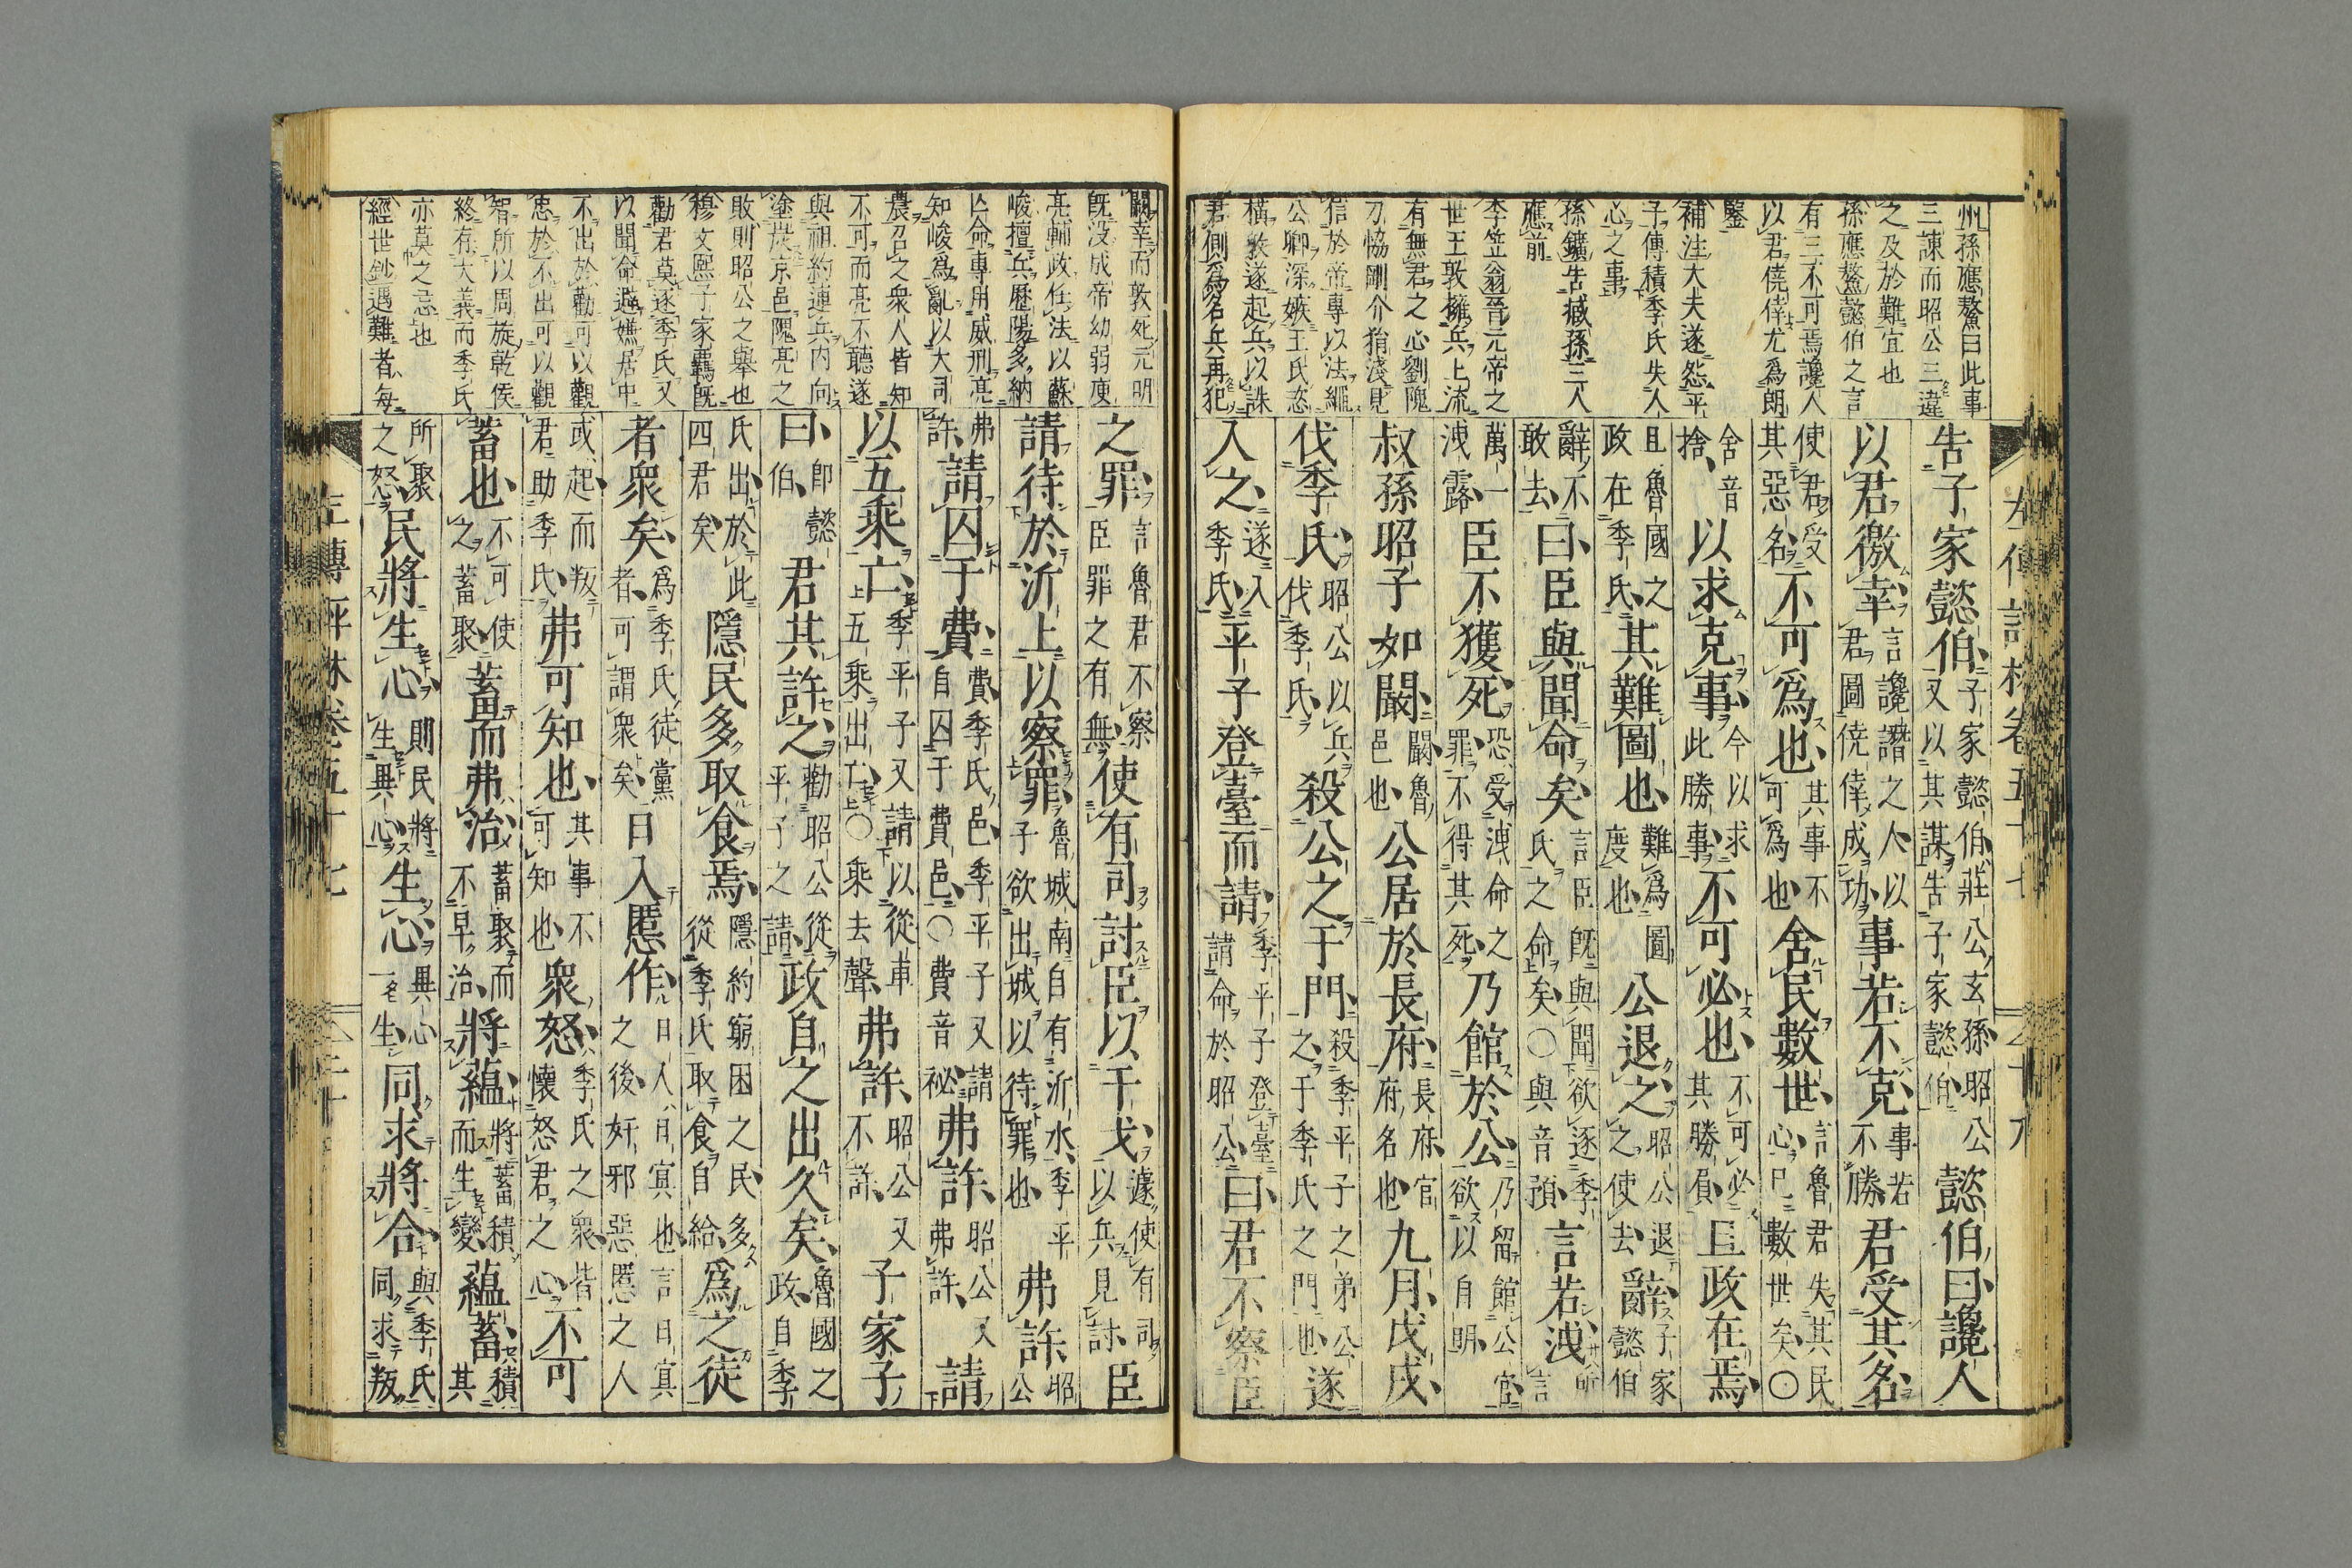 州孫應鰲曰此事
三諫而昭公三違
之及於難宜也
孫應鰲懿伯之言
有三不可焉讒人
以君僥倖尤爲朗
鑒
補注大夫遂怨平
子傳積季氏失人
心之事
孫鑛告臧孫三人
應前
李笠翁晉元帝之
世王敦擁兵上流
有無君之心劉隗
刀恊剛介狷淺見
信於帝專以法繩
公卿深嫉王氏恣
橫敦遂起兵以誅
君側爲名兵再犯
告子家懿伯子家懿伯莊公玄孫昭公又以其謀告子家懿伯懿伯曰讒人
以君徼幸言讒譖之人以君圖僥倖成功事若不克事若不勝君受其名
使君受其惡名不可爲也其事不可爲也舍民數世言魯君失其民心已數世矣〇
舍音捨以求克事今以求此勝事不可必也不可必其勝負且政在焉
且魯國之政在季氏其難圖也難爲圖度也公退之昭公退之使去辭子家懿伯
辭不敢去曰臣與聞命矣言臣既與聞季氏之命矣〇與音預言若洩言
萬一洩露臣不獲死恐受洩命之罪不得其死乃館於公乃留館公宮欲以自明
叔孫昭子如闞闞魯邑也公居於長府長府官府名也九月戊戌
伐季氏昭公以兵伐季氏殺公之于門殺季平子之弟公之于季氏之門也遂
入之遂入季氏平子登臺而請季平子登臺請命於昭公曰君不察臣
闕幸而敦死元明
既没成帝幼弱庾
亮輔政任法以蘇
峻擅兵歷陽多納
亡命專用威刑亮
知峻爲亂以大司
農召之衆人皆知
不可而亮不聽遂
與祖約連兵内向
塗炭京邑隗亮之
敗則昭公之舉也
穆文熙子家覊既
勸君莫逐季氏又
以聞命避嫌居中
不出於勸可以觀
忠於不出可以觀
智所以周旋乾侯
終有大義而季氏
亦莫之忌也
經世鈔遇難者每
之罪言魯君不察臣罪之有無使有司討臣以干戈遽使有司以兵見討臣
請待於沂上以察罪魯城南自有沂水季平子欲出城以待罪也弗許昭公
弗許請囚于費費季氏邑季平子又請自囚于費邑〇費音祕弗許昭公又弗許請
以五乘亡季平子又請以從車五乘出亡〇乘去聲弗許昭公又不許子家子
曰即懿伯君其許之勸昭公從平子之請政自之出久矣魯國之政自季
氏出於此四君矣隱民多取食焉隱約窮困之民多從季氏取食自給爲之徒
者衆矣爲季氏徒黨者可謂衆矣日入慝作日入日冥也言日冥之後奸邪惡慝之人
或起而叛君助季氏弗可知也其事不可知也衆怒季氏之衆皆懷怒君之心不可
蓄也不可使之蓄聚蓄而弗治蓄聚而不早治將蘊將蓄積而生變蘊蓄積其
所聚之怒民將生心則民將生異心生心異心一生同求將合與季氏同求叛